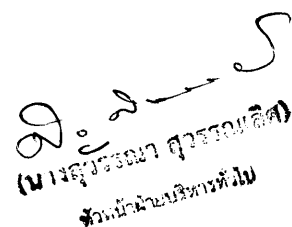 (นางสุวรรณา สุวรรณเลิศ)
หัวหน้าฝ่ายบริหารทั่วไป